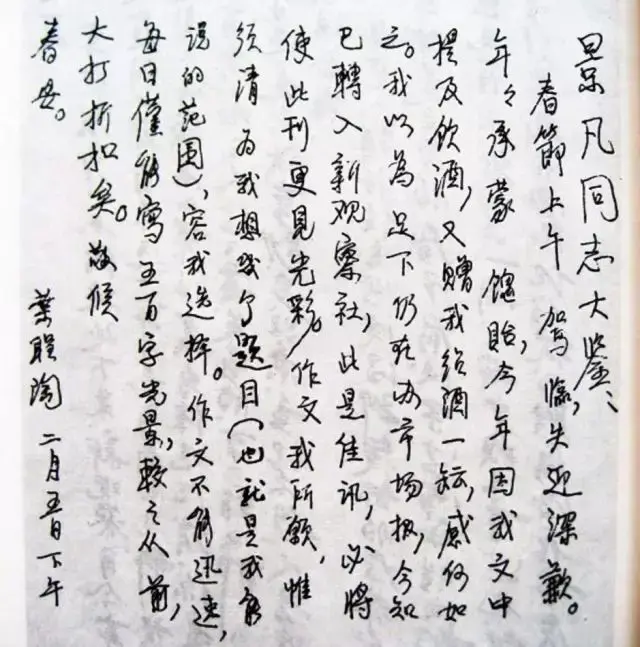 景凡同志大鉴、
春節上午 駕臨，失迎深歉。
年々承蒙 餽貽，今年因我文中
提及飲酒，又贈我绍酒一罈，感何如
之。我以為 足下仍在办市场报，今知
已轉入新观察社，此是佳讯，必将
使此刊更見光彩。作文我所願，惟
须请 为我想幾个题目（也就是我能
说的范围），容我选择。作文不能迅速，
每日僅能寫五百字光景，較之从前，
大打折扣矣。敬候
春安。
葉聖陶 二月五日下午